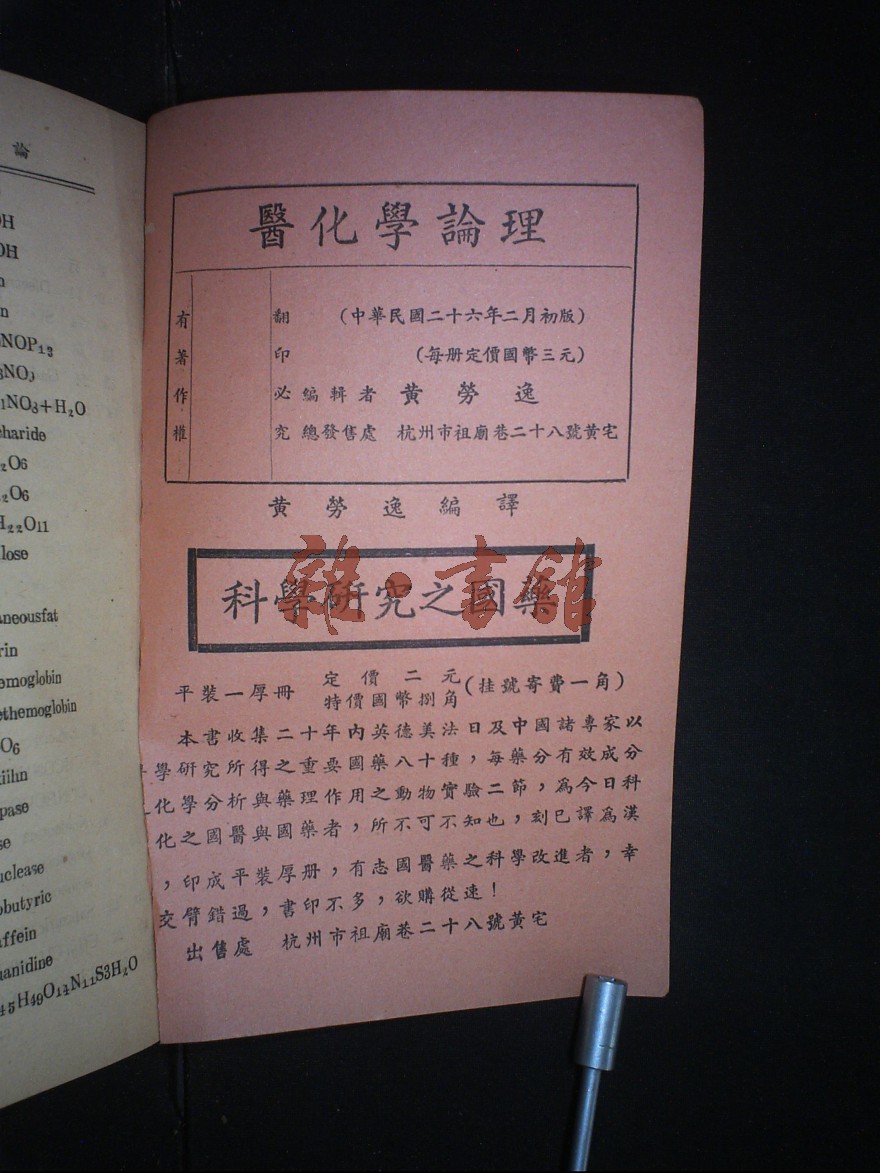 論
OH
OH
n
n
NOP₁₃
NO₃
₁NO₃+H₂O
charide
₂O₆
₂O₆
H₂₂O₁₁
lose
aneousfat
rin
emoglobin
ethemoglobin
O₆
kiihn
pase
se
uclease
obutyric
affein
uanidine
₄₅H₄₉O₁₄N₁₁S3H₂O
醫化學論理
有著作權
翻印必究
(中華民國二十六年二月初版)
(每册定價國幣三元)
編輯者 黄勞逸
總發售處 杭州市祖廟巷二十八號黄宅
黄勞逸編譯
科學研究之國藥
雜·書館
平裝一厚冊 定價二元 特價國幣捌角 (挂號寄費一角)
本書收集二十年內英德美法日及中國諸專家以
學研究所得之重要國藥八十種,每藥分有效成分
化學分析與藥理作用之動物實驗二節,爲今日科
化之國醫與國藥者,所不可不知也,刻已譯爲漢
,印成平裝厚册,有志國醫藥之科學改進者,幸
交臂錯過,書印不多,欲購從速!
出售處 杭州市祖廟巷二十八號黄宅